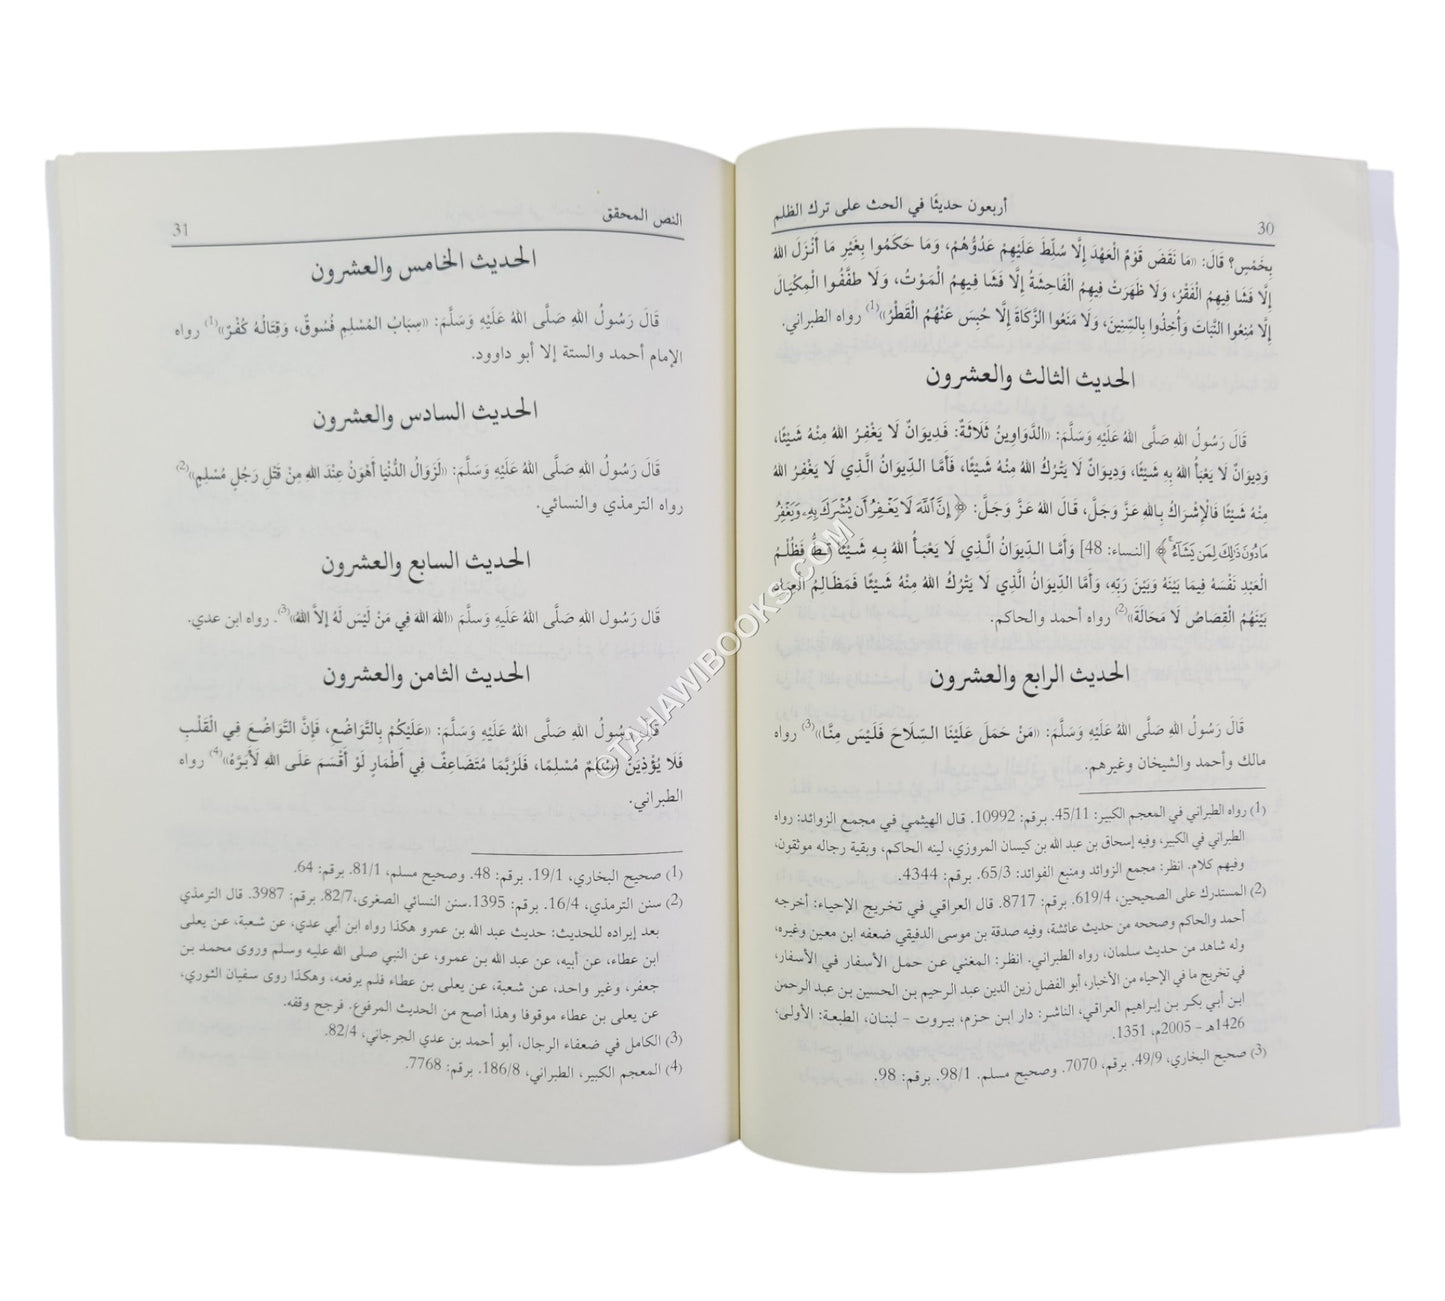 30 أربعون حديثًا في الحث على ترك الظلم
بِخَمْسٍ؟ قَالَ: «مَا نَقَضَ قَوْمٌ الْعَهْدَ إِلَّا سُلِّطَ عَلَيْهِمْ عَدُوُّهُمْ، وَمَا حَكَمُوا بِغَيْرِ مَا أَنْزَلَ اللهُ
إِلَّا فَشَا فِيهِمُ الْفَقْرُ، وَلَا ظَهَرَتْ فِيهِمُ الْفَاحِشَةُ إِلَّا فَشَا فِيهِمُ الْمَوْتُ، وَلَا طَفَّفُوا الْمِكْيَالَ
إِلَّا مُنِعُوا النَّبَاتَ وَأُخِذُوا بِالسِّنِينَ، وَلَا مَنَعُوا الزَّكَاةَ إِلَّا حُبِسَ عَنْهُمُ الْقَطْرُ»(1) رواه الطبراني.
الحديث الثالث والعشرون
قَالَ رَسُولُ اللهِ صَلَّى اللهُ عَلَيْهِ وَسَلَّمَ: «الدَّوَاوِينُ ثَلَاثَةٌ: فَدِيوَانٌ لَا يَغْفِرُ اللهُ مِنْهُ شَيْئًا،
وَدِيوَانٌ لَا يَعْبَأُ اللهُ بِهِ شَيْئًا، وَدِيوَانٌ لَا يَتْرُكُ اللهُ مِنْهُ شَيْئًا، فَأَمَّا الدِّيوَانُ الَّذِي لَا يَغْفِرُ اللهُ
مِنْهُ شَيْئًا فَالْإِشْرَاكُ بِاللهِ عَزَّ وَجَلَّ، قَالَ اللهُ عَزَّ وَجَلَّ: ﴿إِنَّ ٱللَّهَ لَا يَغْفِرُ أَن يُشْرَكَ بِهِۦ وَيَغْفِرُ
مَا دُونَ ذَٰلِكَ لِمَن يَشَآءُ﴾ [النساء: 48] وَأَمَّا الدِّيوَانُ الَّذِي لَا يَعْبَأُ اللهُ بِهِ شَيْئًا قَطُّ فَظُلْمُ
الْعَبْدِ نَفْسَهُ فِيمَا بَيْنَهُ وَبَيْنَ رَبِّهِ، وَأَمَّا الدِّيوَانُ الَّذِي لَا يَتْرُكُ اللهُ مِنْهُ شَيْئًا فَمَظَالِمُ الْعِبَادِ
بَيْنَهُمُ الْقِصَاصُ لَا مَحَالَةَ»(2) رواه أحمد والحاكم.
الحديث الرابع والعشرون
قَالَ رَسُولُ اللهِ صَلَّى اللهُ عَلَيْهِ وَسَلَّمَ: «مَنْ حَمَلَ عَلَيْنَا السِّلَاحَ فَلَيْسَ مِنَّا»(3) رواه
مالك وأحمد والشيخان وغيرهم.
(1) رواه الطبراني في المعجم الكبير: 45/11. برقم: 10992. قال الهيثمي في مجمع الزوائد: رواه
الطبراني في الكبير، وفيه إسحاق بن عبد الله بن كيسان المروزي، لينه الحاكم، وبقية رجاله موثقون،
وفيهم كلام. انظر: مجمع الزوائد ومنبع الفوائد: 65/3. برقم: 4344.
(2) المستدرك على الصحيحين، 619/4. برقم: 8717. قال العراقي في تخريج الإحياء: أخرجه
أحمد والحاكم وصححه من حديث عائشة، وفيه صدقة بن موسى الدقيقي ضعفه ابن معين وغيره،
وله شاهد من حديث سلمان، رواه الطبراني. انظر: المغني عن حمل الأسفار في الأسفار،
في تخريج ما في الإحياء من الأخبار، أبو الفضل زين الدين عبد الرحيم بن الحسين بن عبد الرحمن
ابن أبي بكر بن إبراهيم العراقي، الناشر: دار ابن حزم، بيروت – لبنان، الطبعة: الأولى،
1426هـ – 2005م، 1351.
(3) صحيح البخاري، 49/9. برقم، 7070. وصحيح مسلم. 98/1. برقم: 98.
النص المحقق 31
الحديث الخامس والعشرون
قَالَ رَسُولُ اللهِ صَلَّى اللهُ عَلَيْهِ وَسَلَّمَ: «سِبَابُ المُسْلِمِ فُسُوقٌ، وَقِتَالُهُ كُفْرٌ»(1) رواه
الإمام أحمد والستة إلا أبو داوود.
الحديث السادس والعشرون
قَالَ رَسُولُ اللهِ صَلَّى اللهُ عَلَيْهِ وَسَلَّمَ: «لَزَوَالُ الدُّنْيَا أَهْوَنُ عِنْدَ اللهِ مِنْ قَتْلِ رَجُلٍ مُسْلِمٍ»(2)
رواه الترمذي والنسائي.
الحديث السابع والعشرون
قَالَ رَسُولُ اللهِ صَلَّى اللهُ عَلَيْهِ وَسَلَّمَ «اللهَ اللهَ فِي مَنْ لَيْسَ لَهُ إِلاَّ اللهُ»(3). رواه ابن عدي.
الحديث الثامن والعشرون
قَالَ رَسُولُ اللهِ صَلَّى اللهُ عَلَيْهِ وَسَلَّمَ: «عَلَيْكُمْ بِالتَّوَاضُعِ، فَإِنَّ التَّوَاضُعَ فِي الْقَلْبِ
فَلَا يُؤْذِيَنَّ مُسْلِمٌ مُسْلِمًا، فَلَرُبَّمَا مُتَضَاعِفٌ فِي أَطْمَارٍ لَوْ أَقْسَمَ عَلَى اللهِ لَأَبَرَّهُ»(4) رواه
الطبراني.
(1) صحيح البخاري، 19/1. برقم: 48. وصحيح مسلم، 81/1. برقم: 64.
(2) سنن الترمذي، 16/4. برقم: 1395.سنن النسائي الصغرى،82/7. برقم: 3987. قال الترمذي
بعد إيراده للحديث: حديث عبد الله بن عمرو هكذا رواه ابن أبي عدي، عن شعبة، عن يعلى
ابن عطاء، عن أبيه، عن عبد الله بن عمرو، عن النبي صلى الله عليه وسلم وروى محمد بن
جعفر، وغير واحد، عن شعبة، عن يعلى بن عطاء فلم يرفعه، وهكذا روى سفيان الثوري،
عن يعلى بن عطاء موقوفا وهذا أصح من الحديث المرفوع. فرجح وقفه.
(3) الكامل في ضعفاء الرجال، أبو أحمد بن عدي الجرجاني، 82/4.
(4) المعجم الكبير، الطبراني، 186/8. برقم: 7768.
©TAHAWIBOOKS.COM